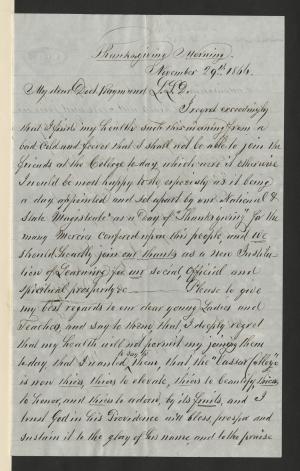 Thanksgiving Morning.
November 29th 1866.
My dear Doct Raymond L.L.D.
I regret exceedingly
that I find my health such this morning from a
bad Cold and fever that I shall not be able to join the
friends at the College to-day, which were it otherwise
I would be most happy to do especially as it being
a day appointed and set apart by our National &
State Magistrate's as a day of "Thanksgiving" for the
many Mercies confered upon this people, and we
should heartily join our thanks as a new Institu
tion of Learning for our social, official and
Spiritual prosperity &c Please to give
my best regards to our dear young Ladies and
Teachers, and say to them, that, I deeply regret
that my health will not permit my joining them
to day that I wanted to say to them, that the "Vassar College"
is now theirs, theirs to elevate, theirs to beautify, theirs
to honor, and theirs to adorn, by its fruits, and I
trust God in his Providence will bless, prosper and
sustain it to the glory of his name, and to the praise